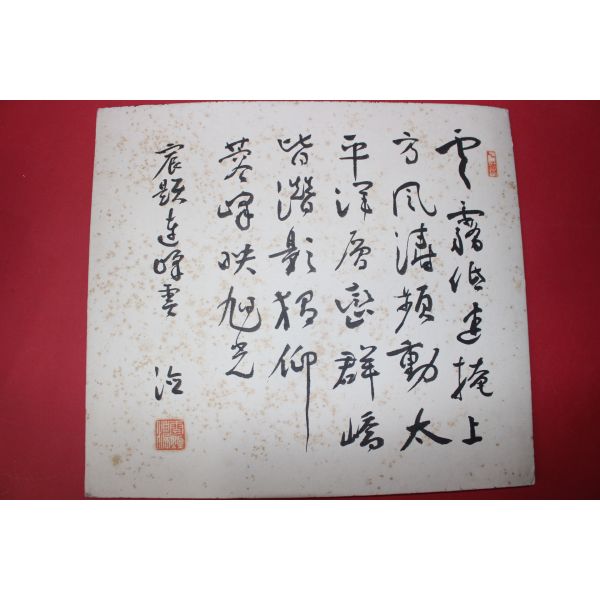 雲霧低迷掩上
方風濤頻動太
平洋層巒群嶠
皆潛影獨仰
蓉峰映旭光
宸題連峰雲